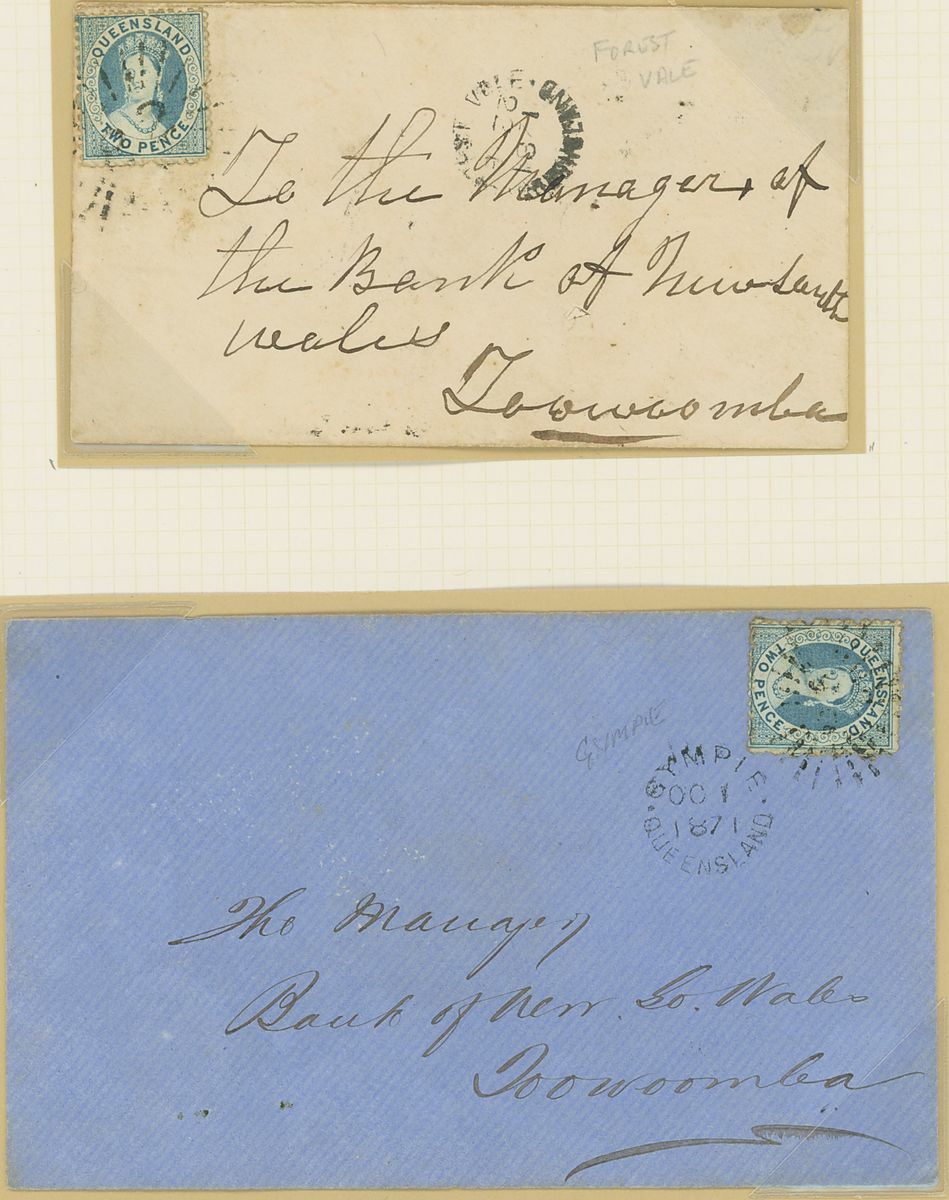 QUEENSLAND
TWO PENCE
FOREST
VALE
VALE
To the Manager, of
the Bank of New South
wales
Toowoomba
QUEENSLAND
TWO PENCE
GYMPIE
GYMPIE
OC 1
1871
QUEENSLAND
The Manager
Bank of New. So. Wales
Toowoomba